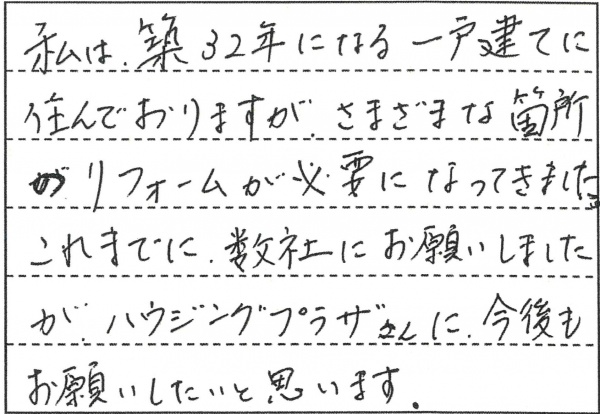 私は、築32年になる一戸建てに
住んでおりますが、さまざまな箇所
のリフォームが必要になってきました。
これまでに、数社にお願いしました
が、ハウジングプラザさんに、今後も
お願いしたいと思います。